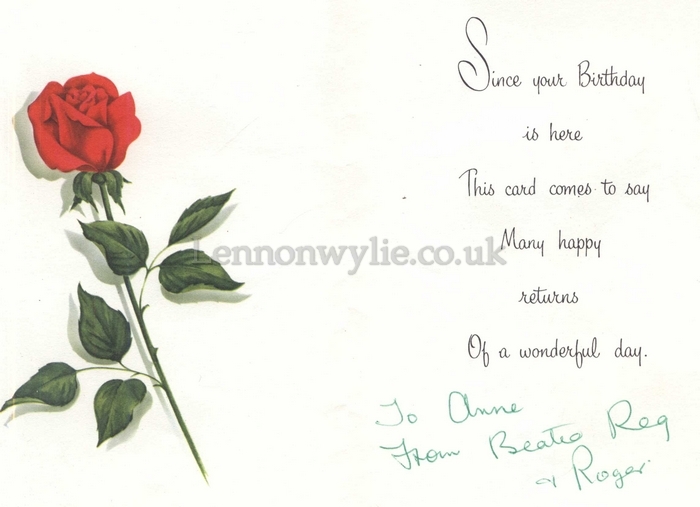 Since your Birthday
is here
This card comes to say
Many happy
Lennonwylie.co.uk
returns
Of a wonderful day.
To Anne
From Beatie Reg
+ Roger